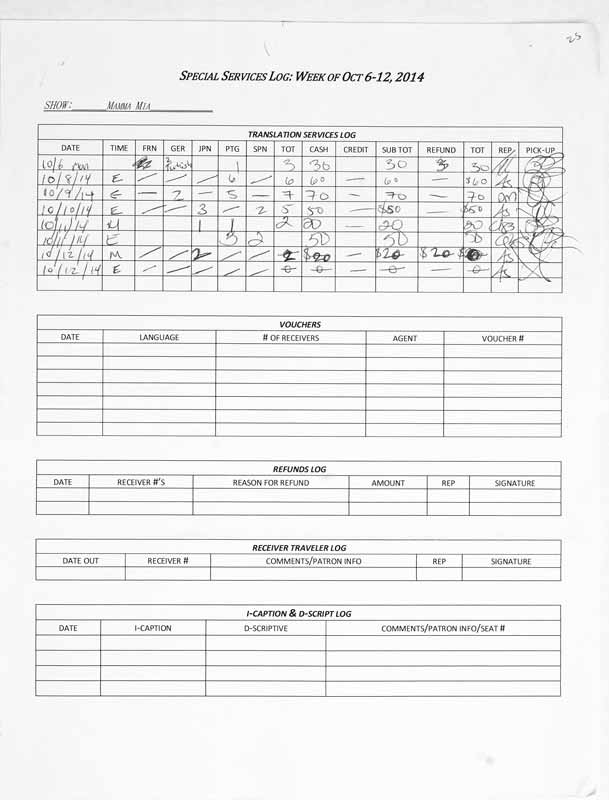 25
SPECIAL SERVICES LOG: WEEK OF OCT 6-12, 2014
SHOW: MAMMA MIA
TRANSLATION SERVICES LOG
DATE TIME FRN GER JPN PTG SPN TOT CASH CREDIT SUB TOT REFUND TOT REP PICK-UP
10/6 1 3 30 30 30
10/8/14 E — — — 6 — 6 60 — 60 — $60 AS
10/9/14 E — 2 — 5 — 7 70 — 70 — 70 DM
10/10/14 E — — 3 — 2 5 50 — $50 — $50 AS
10/11/14 M 1 1 2 20 — 20 20
10/11/14 E 3 2 50 50 50
10/12/14 M — — 2 — — 2 $20 — $20 $20 AS
10/12/14 E — — — — — 0 0 — 0 — 0 AS
VOUCHERS
DATE LANGUAGE # OF RECEIVERS AGENT VOUCHER #
REFUNDS LOG
DATE RECEIVER #'S REASON FOR REFUND AMOUNT REP SIGNATURE
RECEIVER TRAVELER LOG
DATE OUT RECEIVER # COMMENTS/PATRON INFO REP SIGNATURE
I-CAPTION & D-SCRIPT LOG
DATE I-CAPTION D-SCRIPTIVE COMMENTS/PATRON INFO/SEAT #